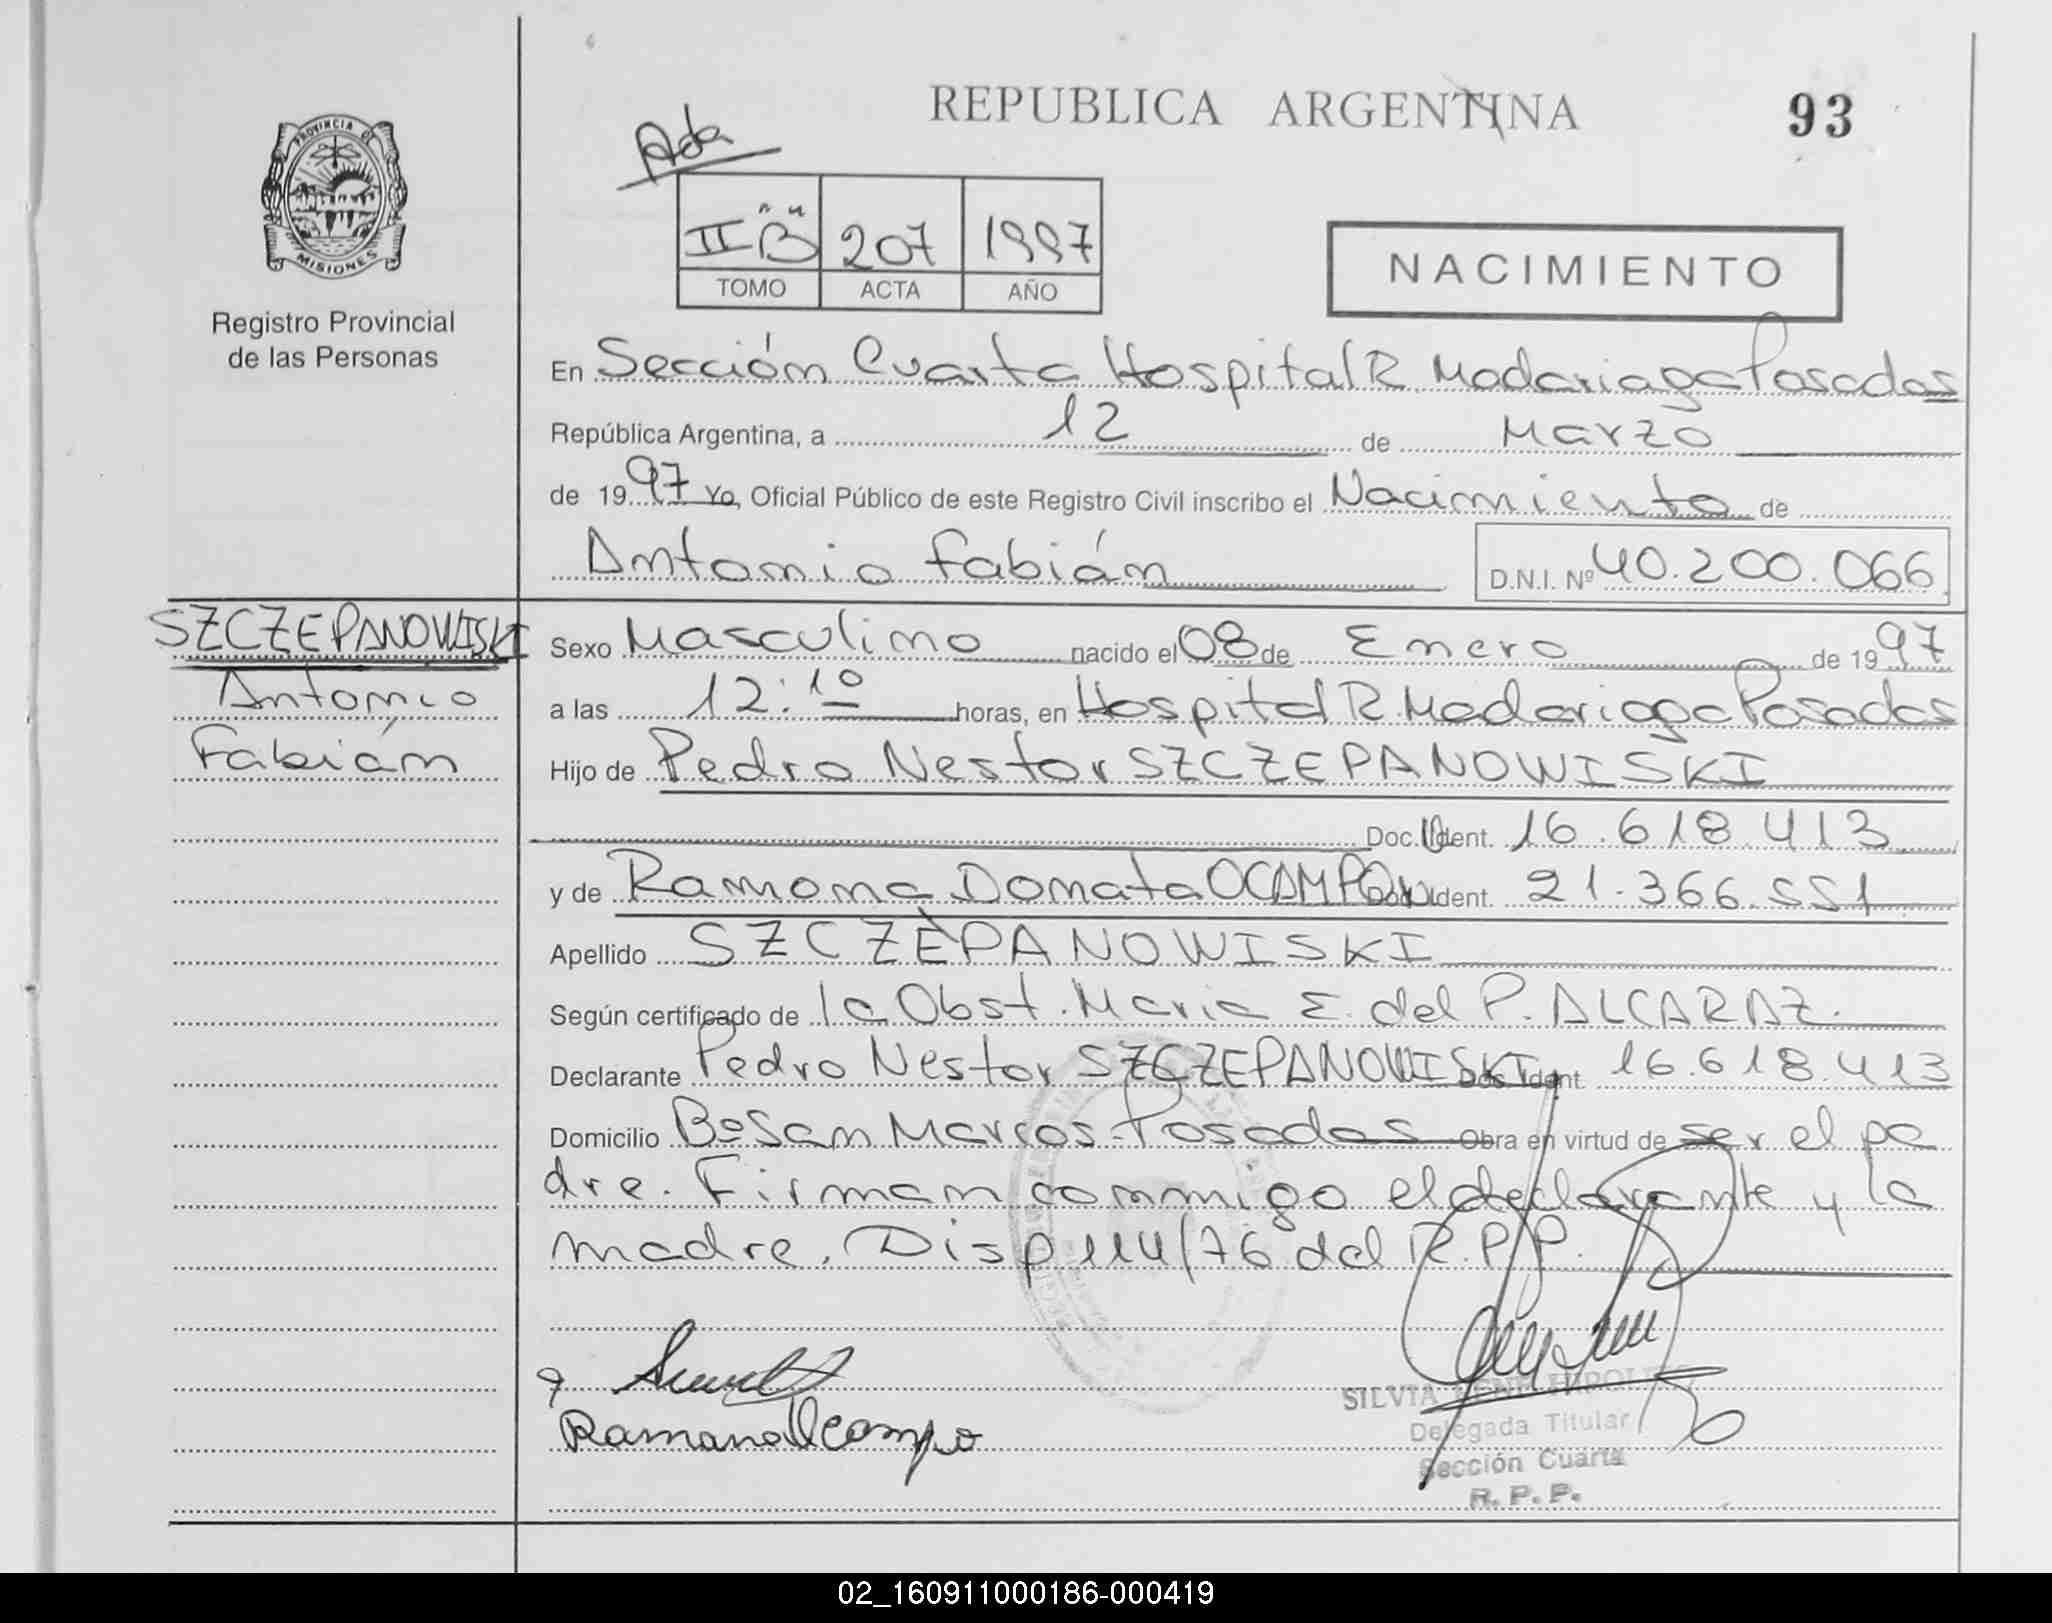 REPUBLICA ARGENTINA
93
Ada
PROVINCIA DE
MISIONES
Registro Provincial
de las Personas
II "B" 207 1997
TOMO ACTA AÑO
NACIMIENTO
En Sección Cuarta Hospital R. Madariaga Posadas
República Argentina, a 12 de Marzo
de 1997 Yo, Oficial Público de este Registro Civil inscribo el Nacimiento de
Antonio Fabián D.N.I. Nº 40.200.066
SZCZEPANOWISKI
Antonio
Fabián
Sexo Masculino nacido el 08 de Enero de 1997
a las 12:10 horas, en Hospital R. Madariaga Posadas
Hijo de Pedro Nestor SZCZEPANOWISKI
Doc. Ident. 16.618.413
y de Ramona Donata OCAMPO Doc. Ident. 21.366.551
Apellido SZCZEPANOWISKI
Según certificado de la Obst. Maria E. del P. ALCARAZ.
Declarante Pedro Nestor SZCZEPANOWISKI Doc. Ident. 16.618.413
Domicilio Bº San Marcos - Posadas Obra en virtud de ser el pa
dre. Firman conmigo el declarante y la
madre. Disp 114/76 del R.P.P.
Ramona Ocampo
SILVIA
Delegada Titular
Sección Cuarta
R. P. P.
02_160911000186-000419